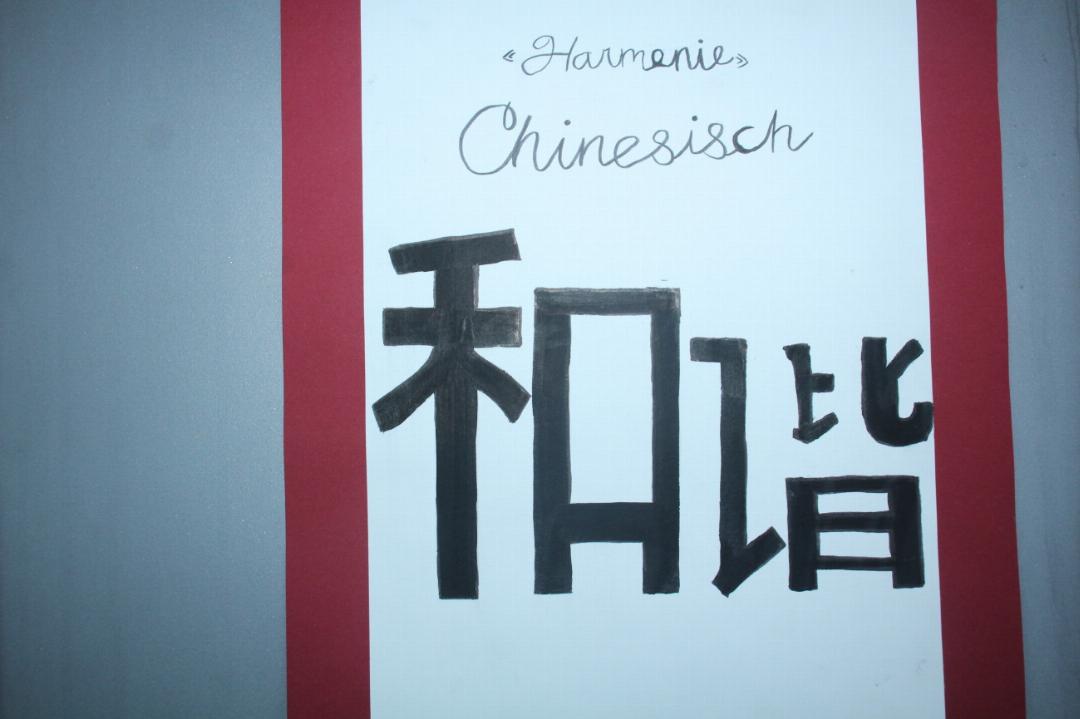 «Harmonie»
Chinesisch
和谐